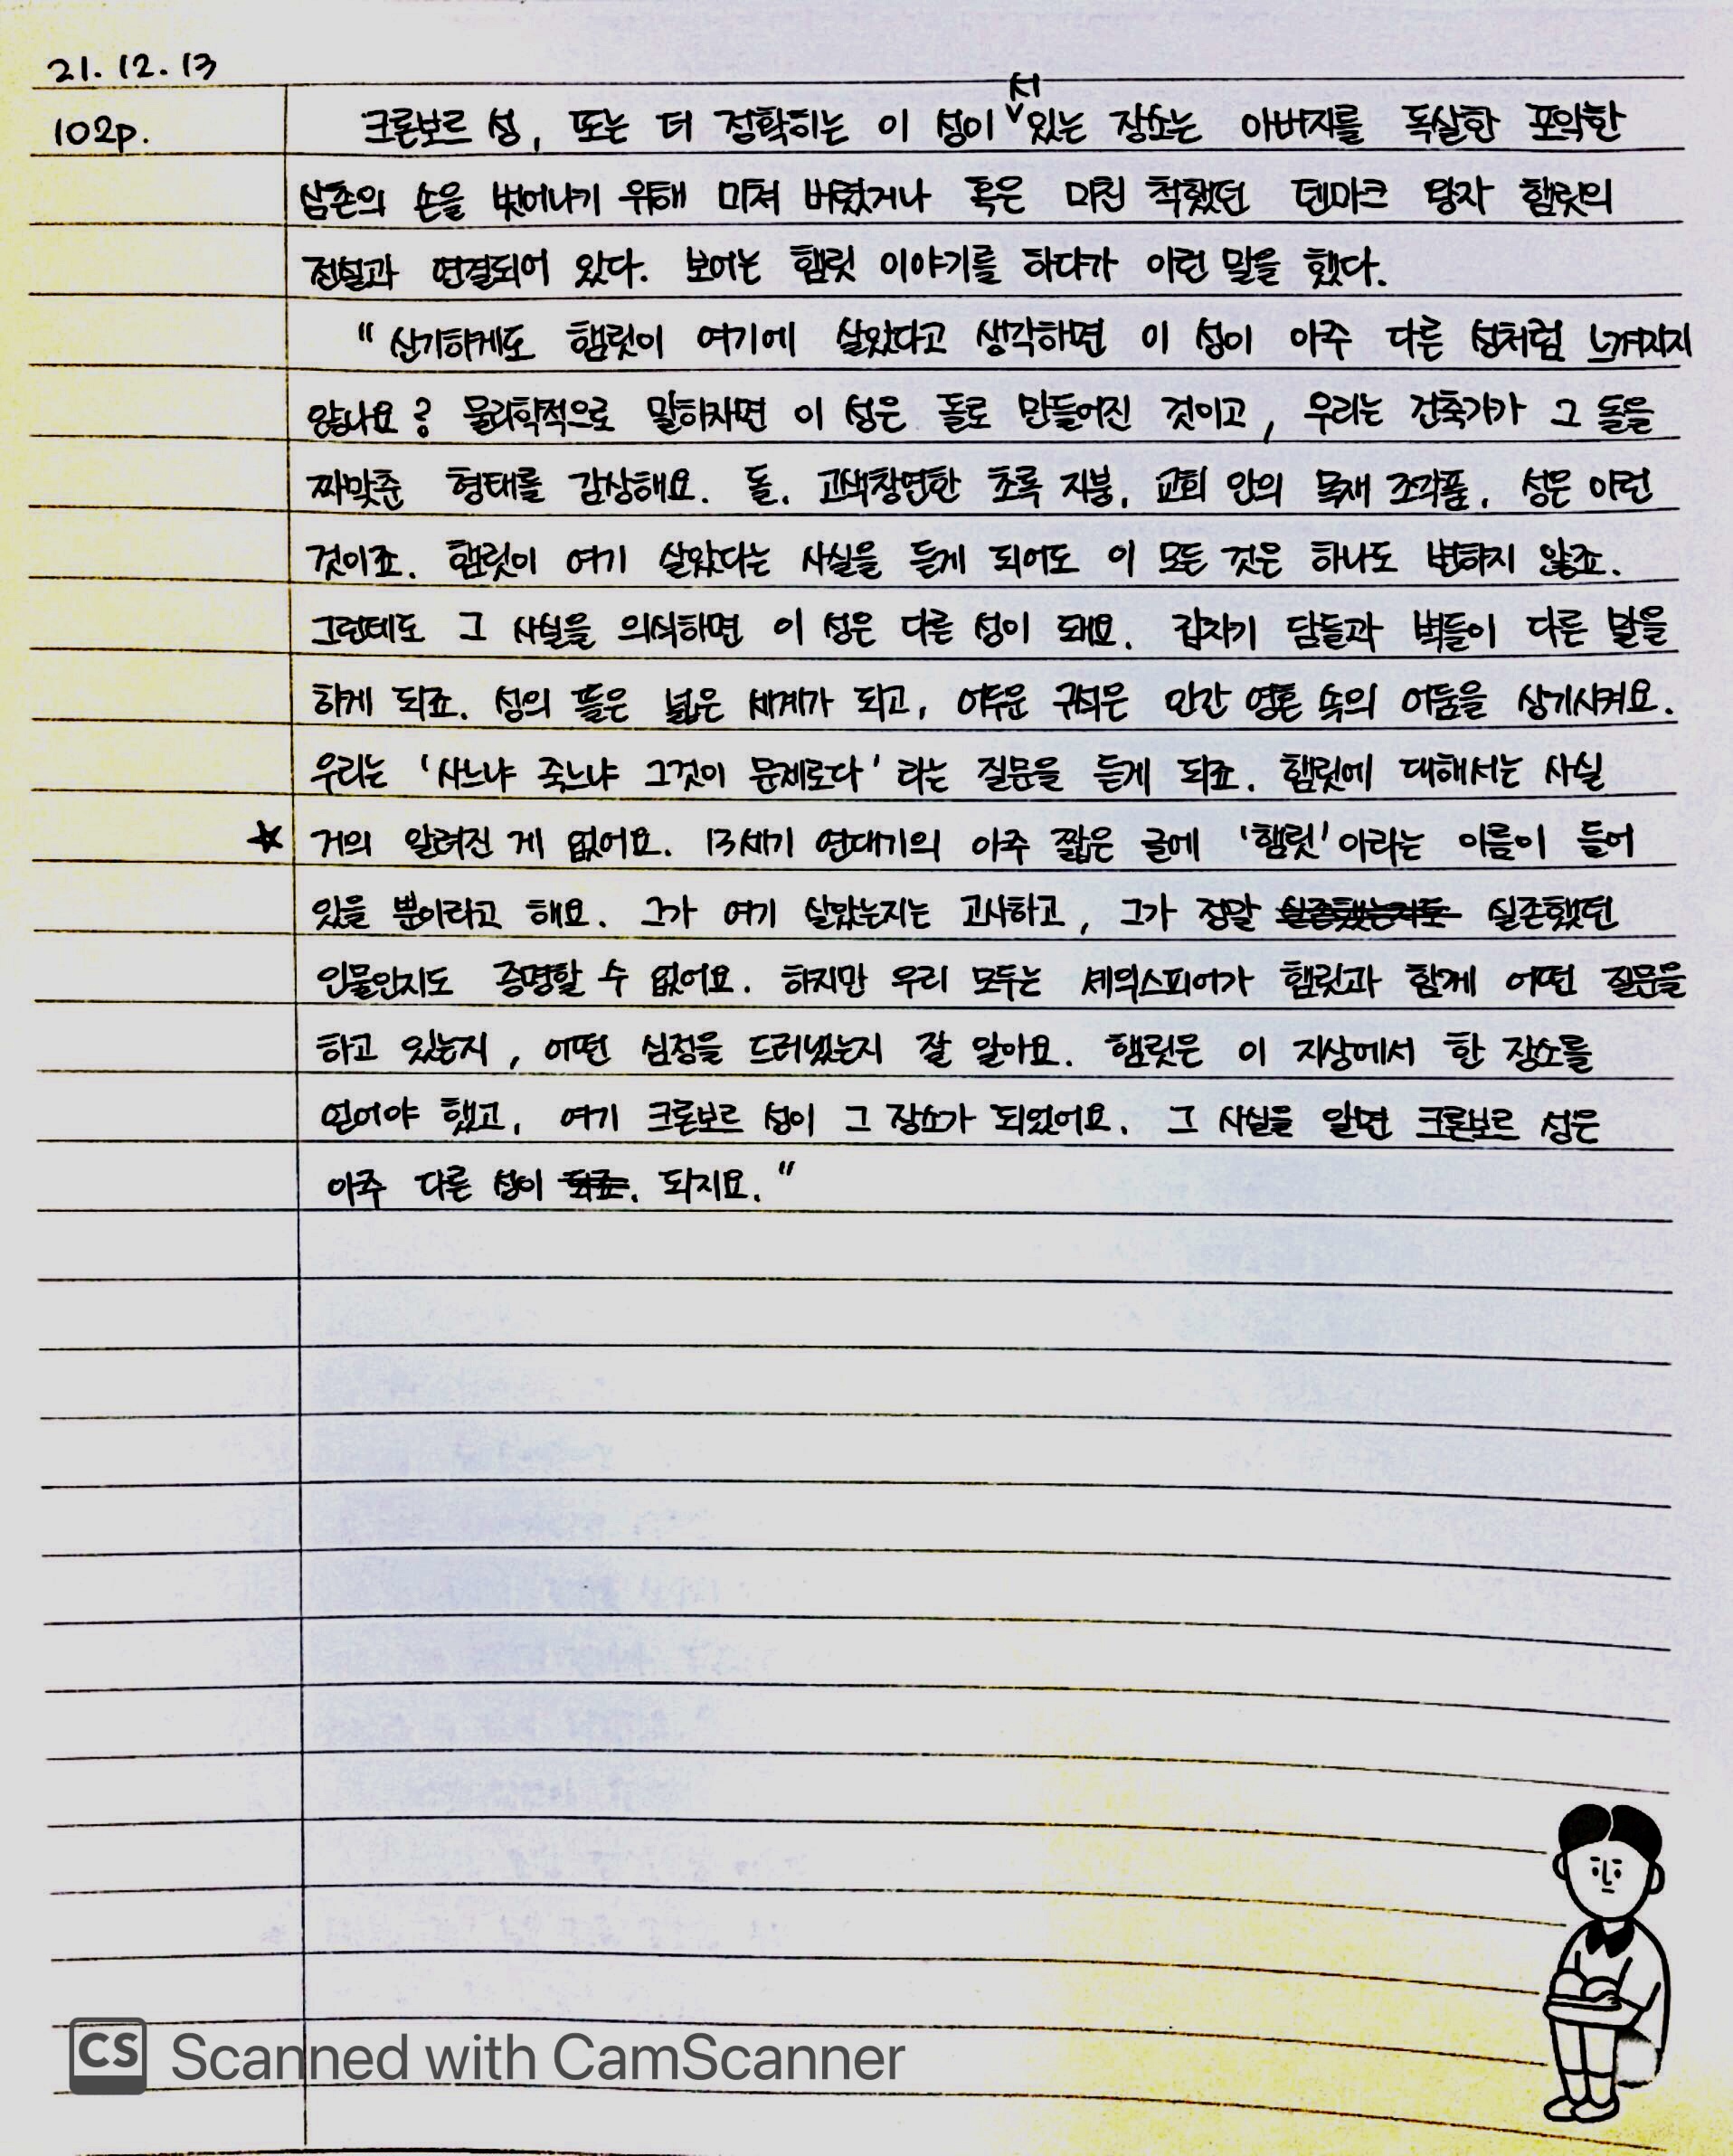 21. 12. 13
102p.
크론보르 성, 또는 더 정확히는 이 성이 서 있는 장소는 아버지를 독살한 포악한
삼촌의 손을 벗어나기 위해 미쳐 버렸거나 혹은 미친 척했던 덴마크 왕자 햄릿의
전설과 연결되어 있다. 보어는 햄릿 이야기를 하다가 이런 말을 했다.
" 신기하게도 햄릿이 여기에 살았다고 생각하면 이 성이 아주 다른 성처럼 느껴지지
않나요? 물리학적으로 말하자면 이 성은 돌로 만들어진 것이고, 우리는 건축가가 그 돌을
짜맞춘 형태를 감상해요. 돌, 고색창연한 초록 지붕, 교회 안의 목재 조각품. 성은 이런
것이죠. 햄릿이 여기 살았다는 사실을 듣게 되어도 이 모든 것은 하나도 변하지 않죠.
그런데도 그 사실을 의식하면 이 성은 다른 성이 돼요. 갑자기 담들과 벽들이 다른 말을
하게 되죠. 성의 뜰은 넓은 세계가 되고, 어두운 구석은 인간 영혼 속의 어둠을 상기시켜요.
우리는 '사느냐 죽느냐 그것이 문제로다' 라는 질문을 듣게 되죠. 햄릿에 대해서는 사실
☆ 거의 알려진 게 없어요. 13세기 연대기의 아주 짧은 글에 '햄릿'이라는 이름이 들어
있을 뿐이라고 해요. 그가 여기 살았는지는 고사하고, 그가 정말 실존했는지도 실존했던
인물인지도 증명할 수 없어요. 하지만 우리 모두는 셰익스피어가 햄릿과 함께 어떤 질문을
하고 있는지, 어떤 심정을 드러냈는지 잘 알아요. 햄릿은 이 지상에서 한 장소를
얻어야 했고, 여기 크론보르 성이 그 장소가 되었어요. 그 사실을 알면 크론보르 성은
아주 다른 성이 되죠. 되지요."
CS Scanned with CamScanner